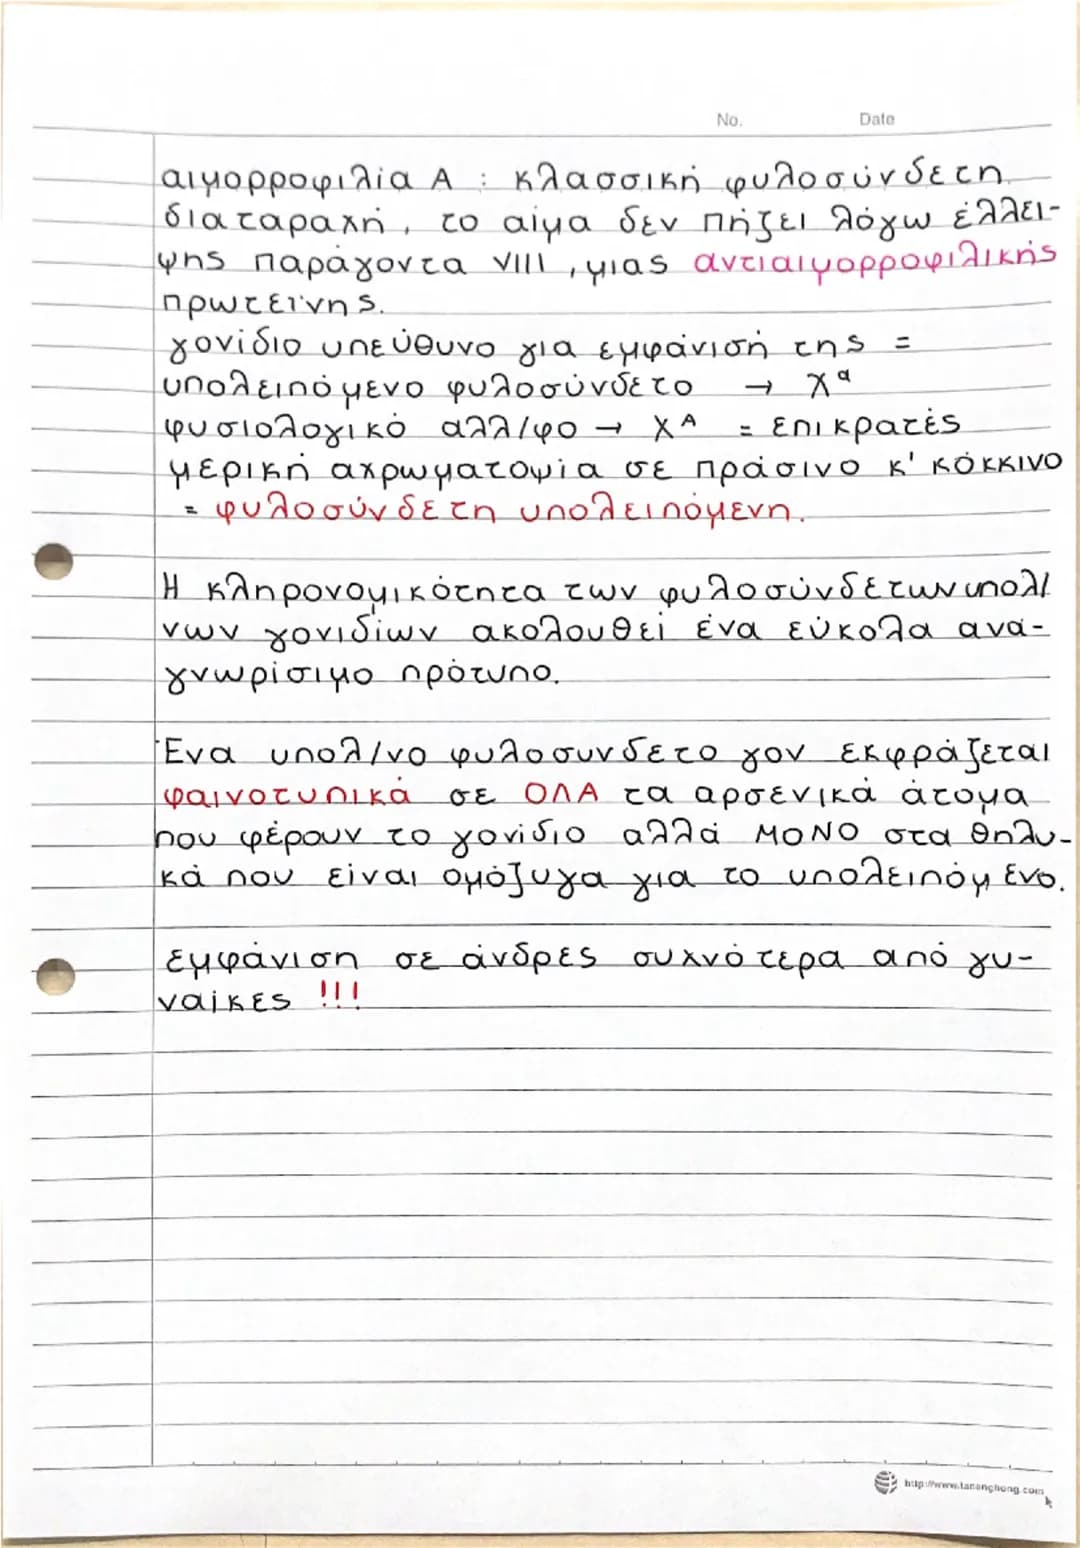 No. Date
αιμορροφιλία Α : κλασσική φυλοσύνδετη
διαταραχή, το αίμα δεν πήζει λόγω έλλει-
ψης παράγοντα VIII, μιας αντιαιμορροφιλικής
πρωτεΐνης.
γονίδιο υπεύθυνο για εμφάνισή της =
υπολειπόμενο φυλοσύνδετο → Χᵃ
φυσιολογικό αλλ/φο → Χᴬ = επικρατές
μερική αχρωματοψία σε πράσινο κ' κόκκινο
= φυλοσύνδετη υπολειπόμενη.
Η κληρονομικότητα των φυλοσύνδετων υπολ/
νων γονιδίων ακολουθεί ένα εύκολα ανα-
γνωρίσιμο πρότυπο.
Ένα υπολ/νο φυλοσυνδετο γον εκφράζεται
φαινοτυπικά σε ΟΛΑ τα αρσενικά άτομα
που φέρουν το γονίδιο αλλά ΜΟΝΟ στα θηλυ-
κά που είναι ομόζυγα για το υπολειπόμενο.
εμφάνιση σε άνδρες συχνότερα από γυ-
ναίκες !!!